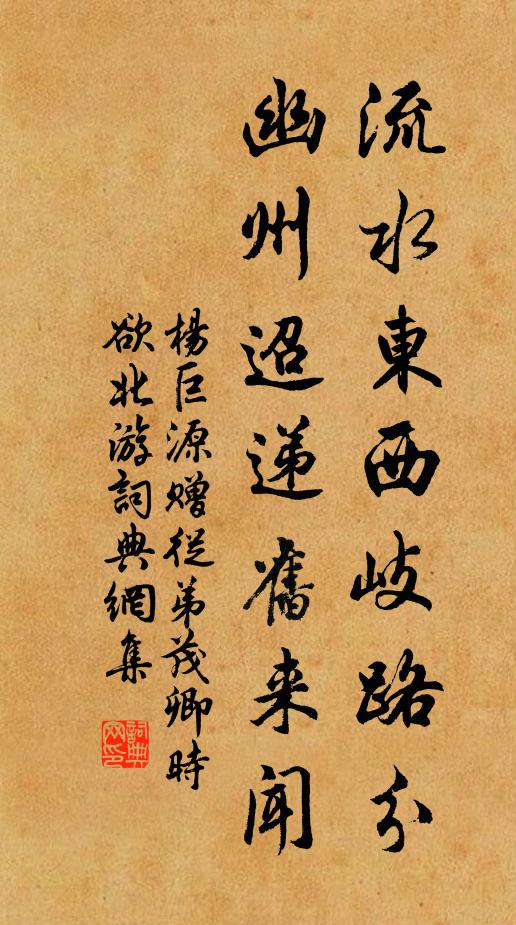 流水東西歧路分
幽州迢遞舊来聞
楊巨源贈從弟茂卿時
欲北游詞典網集
詞典網印